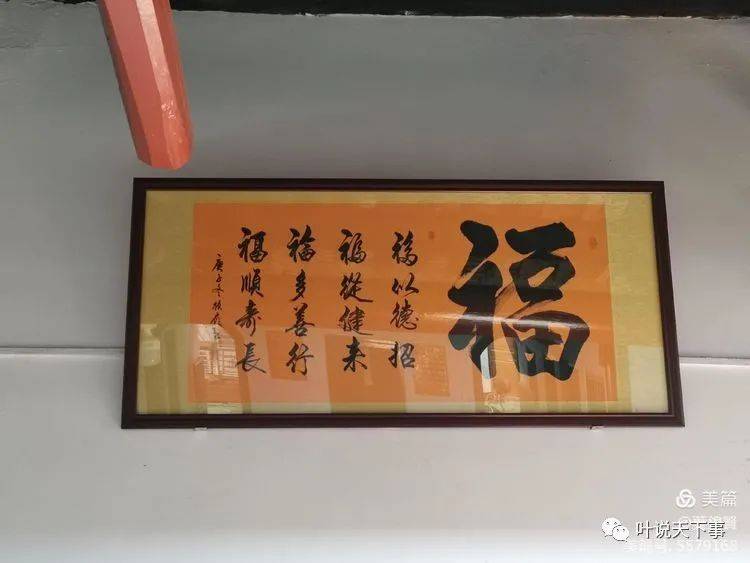 福
福以德招
福從健来
福多善行
福順壽長
庚子冬
美篇
叶说天下事
5579168